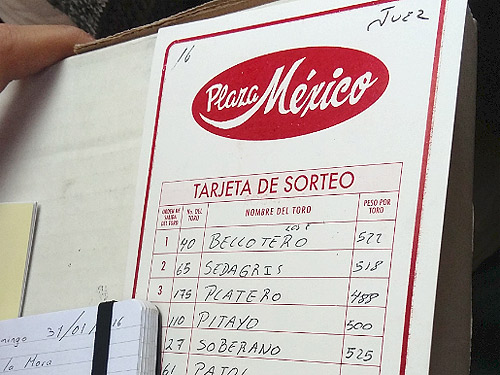 16
JUEZ
Plaza México
TARJETA DE SORTEO
ORDEN DE SALIDA DEL TORO No. DEL TORO NOMBRE DEL TORO PESO POR TORO
1 40 BELLOTERO 522
2 65 SEDAGRIS 518
3 175 PLATERO 488
110 PITAYO 500
27 SOBERANO 525
61
mingo 31/01/16
la Mora